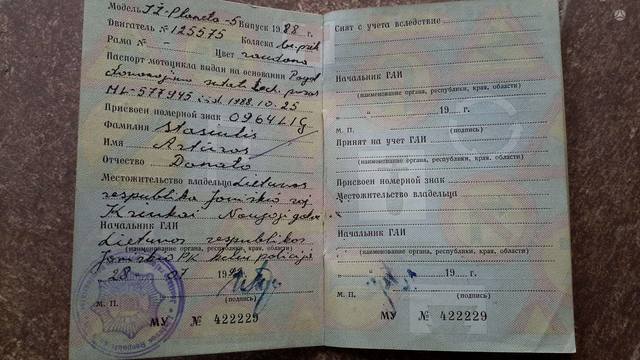 Модель IŽ-Planeta-5 Выпуск 1988 г.
Двигатель № 125575
Рама № - Коляска be prik
Цвет raudona
Паспорт мотоцикла выдан на основании
tech. pasas
ML-577945 išd. 1988.10.25
Присвоен номерной знак 0964LIG
Фамилия Stasiulis
Имя Artūras
Отчество Donato
Местожительство владельца Lietuvos
respublika Joniškio raj.
Kriukai Naujoji
Начальник ГАИ
Lietuvos respublikos
(наименование органа, республики, края, области)
Joniškio PK kelių policija
28 07 199
М. П. (подпись)
МУ № 422229
Снят с учета вследствие
Начальник ГАИ
(наименование органа, республики, края, области)
„ “ 19 г.
М. П. (подпись)
Принят на учет ГАИ
(наименование органа, республики, края, области)
Присвоен номерной знак
Местожительство владельца
Начальник ГАИ
(наименование органа, республики, края, области)
„ “ 19 г.
М. П. (подпись)
МУ № 422229